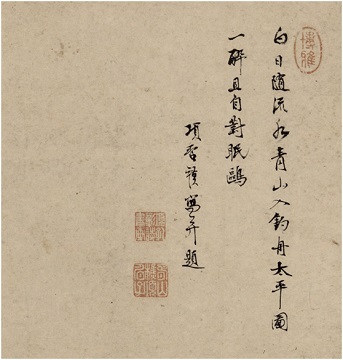 白日随流水青山入釣舟太平圖
一醉且自對眠鷗
項聖謨寫并題
博雅